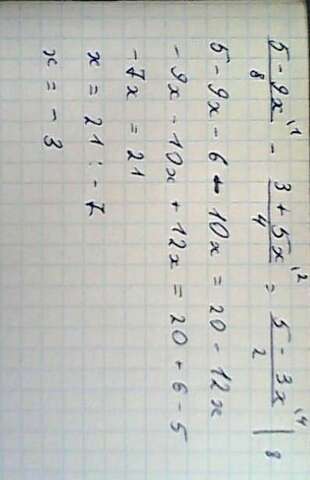 5 - 9x\1 / 8 - 3 + 5x\2 / 4 = 5 - 3x\4 / 2 | 8
5 - 9x - 6 - 10x = 20 - 12x
- 9x - 10x + 12x = 20 + 6 - 5
- 7x = 21
x = 21 : - 7
x = - 3